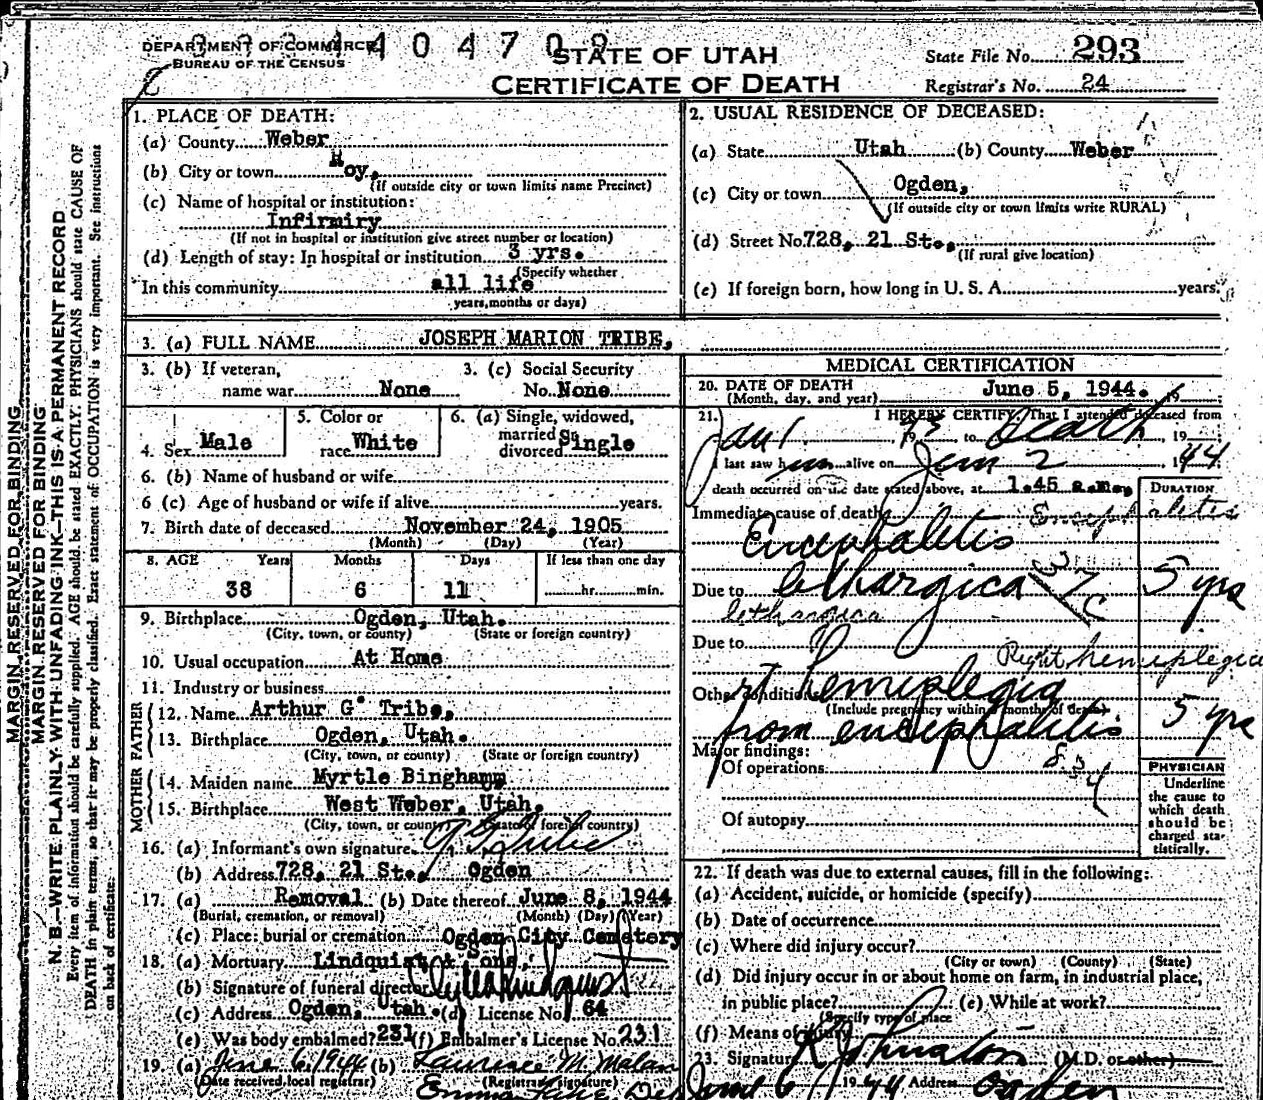 DEPARTMENT OF COMMERCE
BUREAU OF THE CENSUS
STATE OF UTAH
CERTIFICATE OF DEATH
State File No. 293
Registrar's No. 24
MARGIN RESERVED FOR BINDING
MARGIN RESERVED FOR BINDING
N. B.—WRITE PLAINLY, WITH UNFADING INK—THIS IS A PERMANENT RECORD
Every item of information should be carefully supplied. AGE should be stated EXACTLY. PHYSICIANS should state CAUSE OF
DEATH in plain terms, so that it may be properly classified. Exact statement of OCCUPATION is very important. See instructions
on back of certificate.
1. PLACE OF DEATH:
(a) County Weber
(b) City or town Roy,
(If outside city or town limits name Precinct)
(c) Name of hospital or institution:
Infirmiry
(If not in hospital or institution give street number or location)
(d) Length of stay: In hospital or institution 3 yrs.
(Specify whether
In this community all life
years, months or days)
2. USUAL RESIDENCE OF DECEASED:
(a) State Utah (b) County Weber
(c) City or town Ogden,
(If outside city or town limits write RURAL)
(d) Street No. 728, 21 St.,
(If rural give location)
(e) If foreign born, how long in U. S. A. years.
3. (a) FULL NAME JOSEPH MARION TRIBE,
3. (b) If veteran,
name war None
3. (c) Social Security
No. None
4. Sex Male
5. Color or
race White
6. (a) Single, widowed,
married
divorced Single
6. (b) Name of husband or wife
6 (c) Age of husband or wife if alive years.
7. Birth date of deceased November 24, 1905
(Month) (Day) (Year)
8. AGE Years Months Days If less than one day
38 6 11 hr. min.
9. Birthplace Ogden, Utah.
(City, town, or county) (State or foreign country)
10. Usual occupation At Home
11. Industry or business
FATHER
12. Name Arthur G Tribe,
13. Birthplace Ogden, Utah.
(City, town, or county) (State or foreign country)
MOTHER
14. Maiden name Myrtle Bingham
15. Birthplace West Weber, Utah.
(City, town, or county) (State or foreign country)
16. (a) Informant's own signature A G Tribe
(b) Address 728, 21 St., Ogden
17. (a) Removal (b) Date thereof June 8, 1944
(Burial, cremation, or removal) (Month) (Day) (Year)
(c) Place: burial or cremation Ogden City Cemetery
18. (a) Mortuary Lindquist & Sons,
(b) Signature of funeral director
(c) Address Ogden, Utah. (d) License No. 64
(e) Was body embalmed? 231 (f) Embalmer's License No. 231
19. (a) June 6, 1944 (b) Laurence M. Malan
(Date received local registrar) (Registrar's signature)
MEDICAL CERTIFICATION
20. DATE OF DEATH June 5, 1944.
(Month, day, and year)
21. I HEREBY CERTIFY, That I attended deceased from
Jan 1 to Death, 19
I last saw him alive on Jun 2 1944
death occurred on the date stated above, at 1.45 a.m.
DURATION
Immediate cause of death Encephalitis
Encephalitis
Due to lethargica 5 yrs
lethargica
Due to
Right hemiplegia
Other conditions rt hemiplegia
(Include pregnancy within months of death)
from encephalitis 5 yrs
Major findings:
Of operations
Of autopsy
PHYSICIAN
Underline
the cause to
which death
should be
charged sta-
tistically.
22. If death was due to external causes, fill in the following:
(a) Accident, suicide, or homicide (specify)
(b) Date of occurrence
(c) Where did injury occur?
(City or town) (County) (State)
(d) Did injury occur in or about home on farm, in industrial place,
in public place? (e) While at work?
(Specify type of place
(f) Means of injury
23. Signature Johnston (M.D. or other)
June 6 1944 Address Ogden